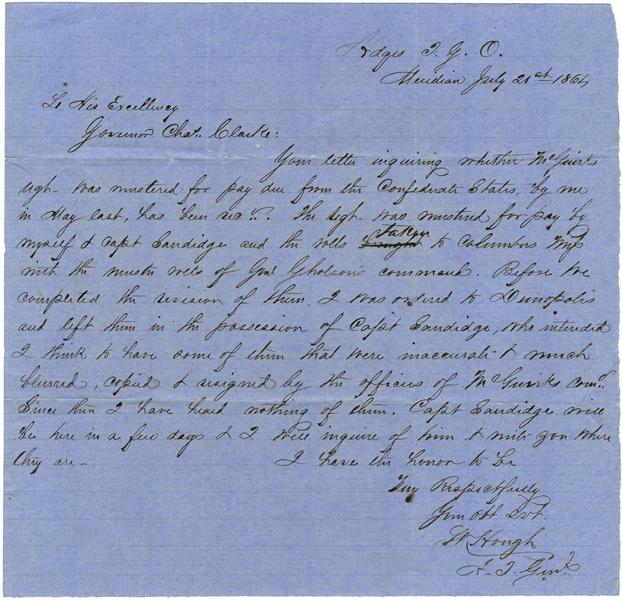 Hdqrs I. G. O.
Meridian July 21st 1864
To His Excellency
Governor Chas. Clarke:
Your letter inquiring whether McGuirks
regt- was mustered for pay due from the Confederate States, by me
in May last, has been rec'd. The regt. was mustered for pay by
myself & Capt Sandidge and the rolls brought taken to Columbus Miss
with the muster rolls of Genl Gholson's command. Before we
completed the revision of them, I was ordered to Demopolis
and left them in the possession of Capt Sandidge, who intended
I think to have some of them that were inaccurate & much
blurred, copied & resigned by the officers of McGuirks com'd.
Since then I have heard nothing of them. Capt Sandidge will
be here in a few days & I will inquire of him & write you where
they are- I have the honor to be
Very Respectfully
Your Obt Svt
W Hough
A. I. Genl.